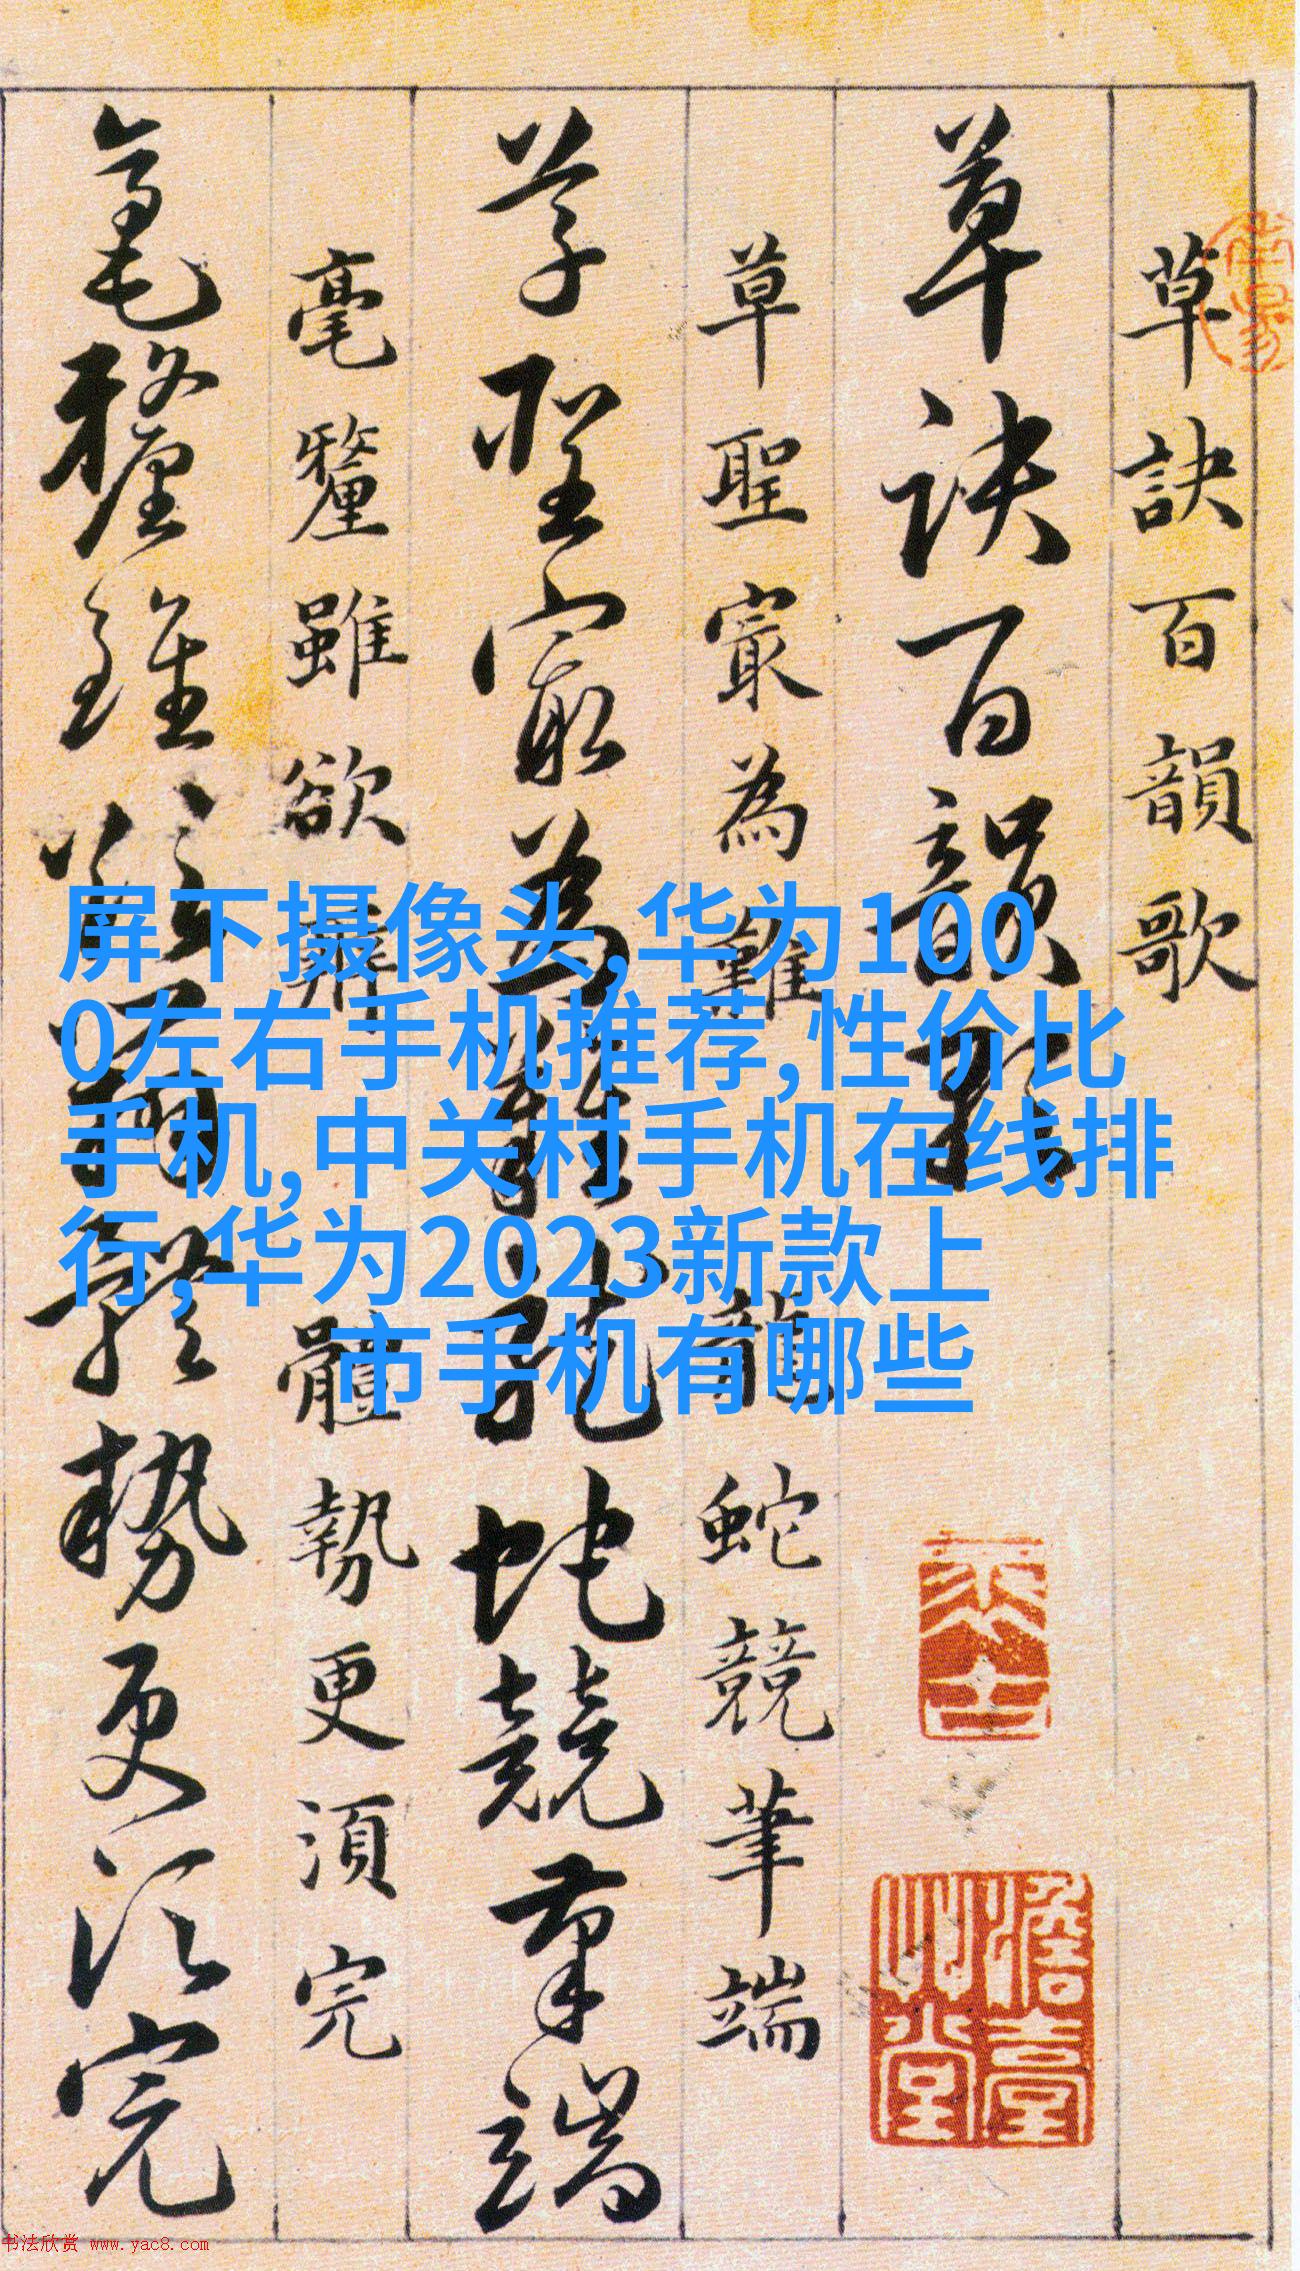 草訣百韻歌
草訣百韻歌
草聖寂為難龍蛇競筆端
草聖寂為難龍蛇競筆端
毫釐雖欲辭體勢更須完
毫釐雖欲辭體勢更須完
屏下摄像头,华为100
0左右手机推荐,性价比
手机,中关村手机在线排
行,华为2023新款上
市手机有哪些
书法欣赏 www.yac8.com